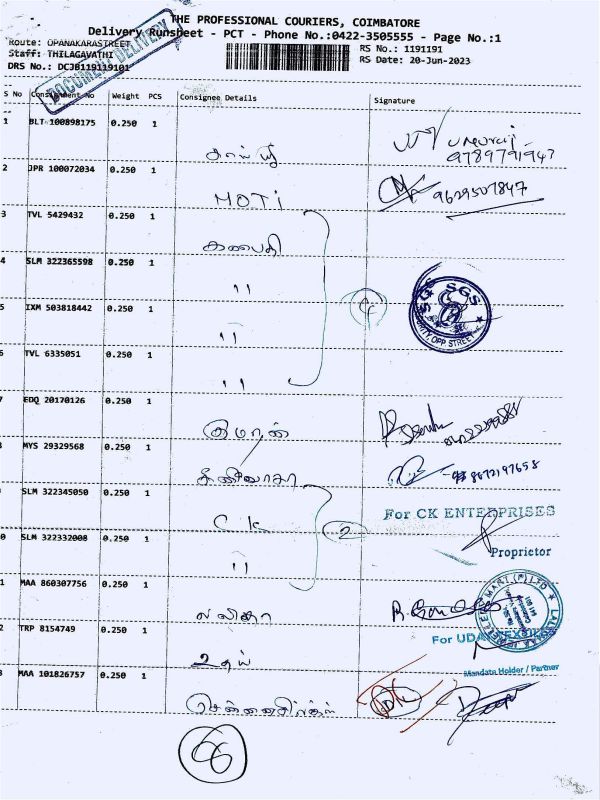 THE PROFESSIONAL COURIERS, COIMBATORE
Delivery Runsheet - PCT - Phone No.:0422-3505555 - Page No.:1
Route: OPANAKARASTREET RS No.: 1191191
Staff: THILAGAVATHI RS Date: 20-Jun-2023
DRS No.: DCJB119119101
DOCUMENT DELIVERY
S No Consignment No Weight PCS Consignee Details Signature
1 BLT 100898175 0.250 1
9789791947
2 JPR 100072034 0.250 1 MOTI 9629507847
3 TVL 5429432 0.250 1 கணபதி
4 SLM 322365598 0.250 1 "
SGS SGS
5 IXM 503818442 0.250 1 "
6 TVL 6335051 0.250 1 "
7 EDQ 20170126 0.250 1 குமரன்
8 MYS 29329568 0.250 1 சீனிவாசா 8672197658
9 SLM 322345050 0.250 1 CK For CK ENTERPRISES
0 SLM 322332008 0.250 1 " 2 Proprietor
1 MAA 860307756 0.250 1 லலிதா
2 TRP 8154749 0.250 1 உதய் For
Mandate Holder / Partner
3 MAA 101826757 0.250 1
66